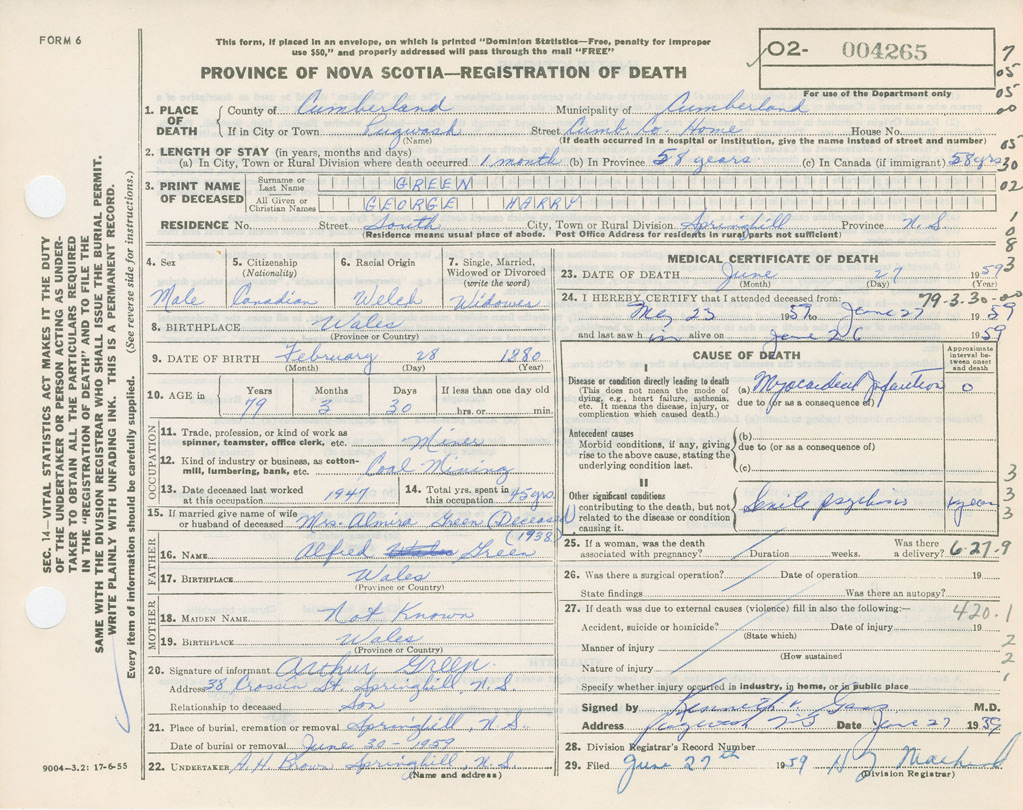 FORM 6
This form, if placed in an envelope, on which is printed "Dominion Statistics—Free, penalty for improper
use $50," and properly addressed will pass through the mail "FREE"
PROVINCE OF NOVA SCOTIA—REGISTRATION OF DEATH
02- 004265
For use of the Department only
7
05
05
00
05
30
02
1
0
8
3
SEC. 14—VITAL STATISTICS ACT MAKES IT THE DUTY
OF THE UNDERTAKER OR PERSON ACTING AS UNDER-
TAKER TO OBTAIN ALL THE PARTICULARS REQUIRED
IN THE "REGISTRATION OF DEATH" AND TO FILE THE
SAME WITH THE DIVISION REGISTRAR WHO SHALL ISSUE THE BURIAL PERMIT.
WRITE PLAINLY WITH UNFADING INK. THIS IS A PERMANENT RECORD.
Every item of information should be carefully supplied. (See reverse side for instructions.)
1. PLACE OF DEATH County of Cumberland Municipality of Cumberland
If in City or Town Pugwash Street Cumb. Co. Home House No.
(Name) (If death occurred in a hospital or institution, give the name instead of street and number)
2. LENGTH OF STAY (in years, months and days)
(a) In City, Town or Rural Division where death occurred 1 month (b) In Province 58 years (c) In Canada (if immigrant) 58 yrs
3. PRINT NAME OF DECEASED Surname or Last Name GREEN
All Given or Christian Names GEORGE HARRY
RESIDENCE No. Street South City, Town or Rural Division Springhill Province N.S.
(Residence means usual place of abode. Post Office Address for residents in rural parts not sufficient)
4. Sex 5. Citizenship (Nationality) 6. Racial Origin 7. Single, Married, Widowed or Divorced (write the word)
Male Canadian Welch Widower
8. BIRTHPLACE Wales
(Province or Country)
9. DATE OF BIRTH February 28 1880
(Month) (Day) (Year)
10. AGE in Years Months Days If less than one day old
79 3 30 hrs. or min.
OCCUPATION
11. Trade, profession, or kind of work as
spinner, teamster, office clerk, etc. Miner
12. Kind of industry or business, as cotton-
mill, lumbering, bank, etc. Coal Mining
13. Date deceased last worked
at this occupation 1947
14. Total yrs. spent in
this occupation 45 yrs.
15. If married give name of wife
or husband of deceased Mrs. Almira Green (Deceased)
(1938)
FATHER
16. NAME Alfred Green
17. BIRTHPLACE Wales
(Province or Country)
MOTHER
18. MAIDEN NAME Not Known
19. BIRTHPLACE Wales
(Province or Country)
20. Signature of informant Arthur Green
Address 38 Crossin St. Springhill N.S.
Relationship to deceased Son
21. Place of burial, cremation or removal Springhill, N.S.
Date of burial or removal June 30 - 1959
22. UNDERTAKER A.H. Brown Springhill, N.S.
(Name and address)
9004—3.2: 17-6-55
MEDICAL CERTIFICATE OF DEATH
23. DATE OF DEATH June 27 1959
(Month) (Day) (Year)
24. I HEREBY CERTIFY that I attended deceased from: 79-3-30-00
May 23 1959 to June 27 1959
and last saw h im alive on June 26 1959
CAUSE OF DEATH
Approximate interval be-tween onset and death
I
Disease or condition directly leading to death
(This does not mean the mode of
dying, e.g., heart failure, asthenia,
etc. It means the disease, injury, or
complication which caused death.)
(a) Myocardial Infarction 0
due to (or as a consequence of)
Antecedent causes
Morbid conditions, if any, giving
rise to the above cause, stating the
underlying condition last.
(b)
due to (or as a consequence of)
(c)
II
Other significant conditions
contributing to the death, but not
related to the disease or condition
causing it.
Senile psychosis year
3
3
3
25. If a woman, was the death
associated with pregnancy? Duration weeks. Was there
a delivery? 6-27-9
26. Was there a surgical operation? Date of operation 19
State findings Was there an autopsy?
27. If death was due to external causes (violence) fill in also the following:— 420.1
Accident, suicide or homicide? Date of injury 19
(State which)
Manner of injury 2
(How sustained) 2
Nature of injury 1
Specify whether injury occurred in industry, in home, or in public place
Signed by Kenneth V. Ganz M.D.
Address Pugwash N.S. Date June 27 1959
28. Division Registrar's Record Number
29. Filed June 27th 1959
(Division Registrar)